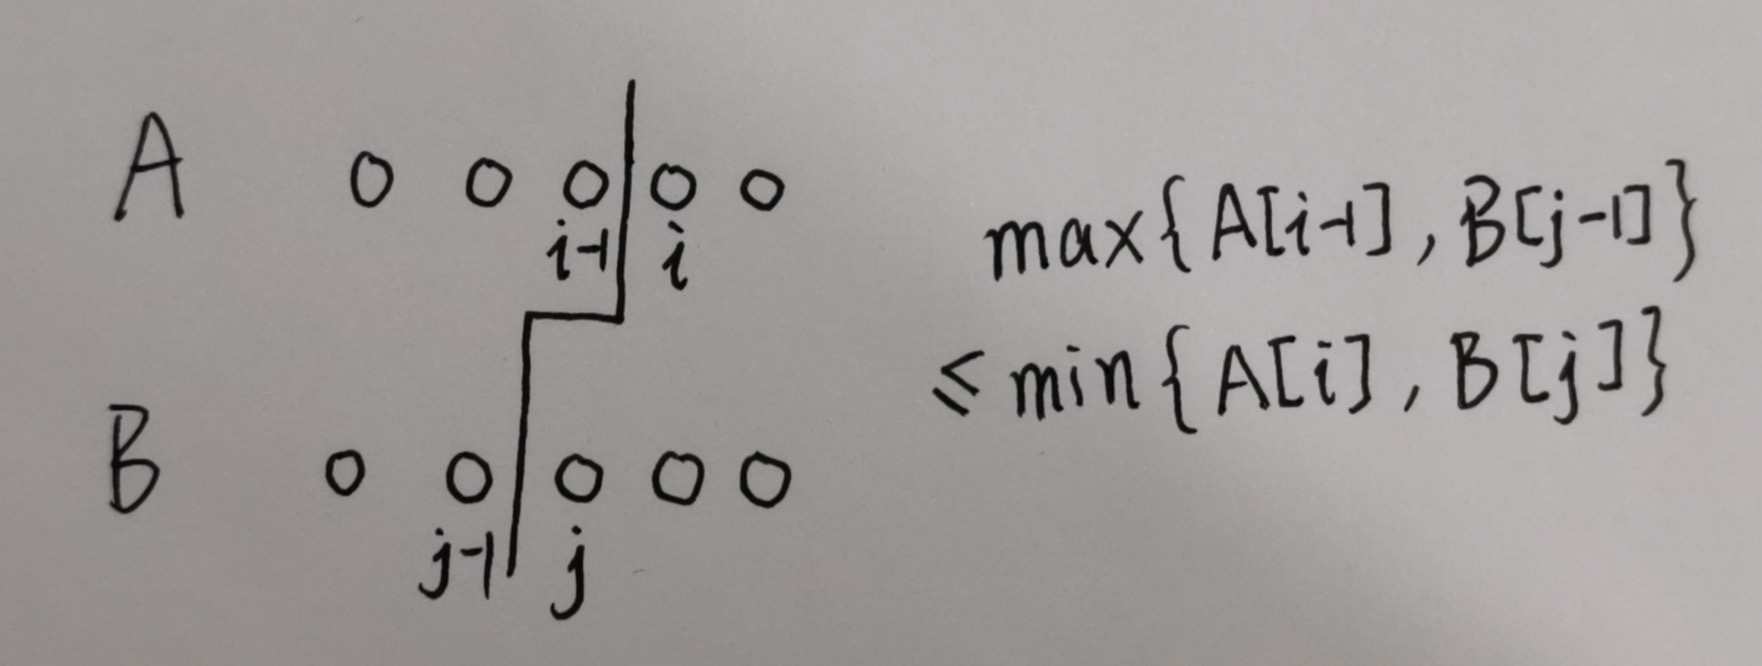 A
i-1 i
B
j-1 j
max{A[i-1], B[j-1]}
≤ min{A[i], B[j]}